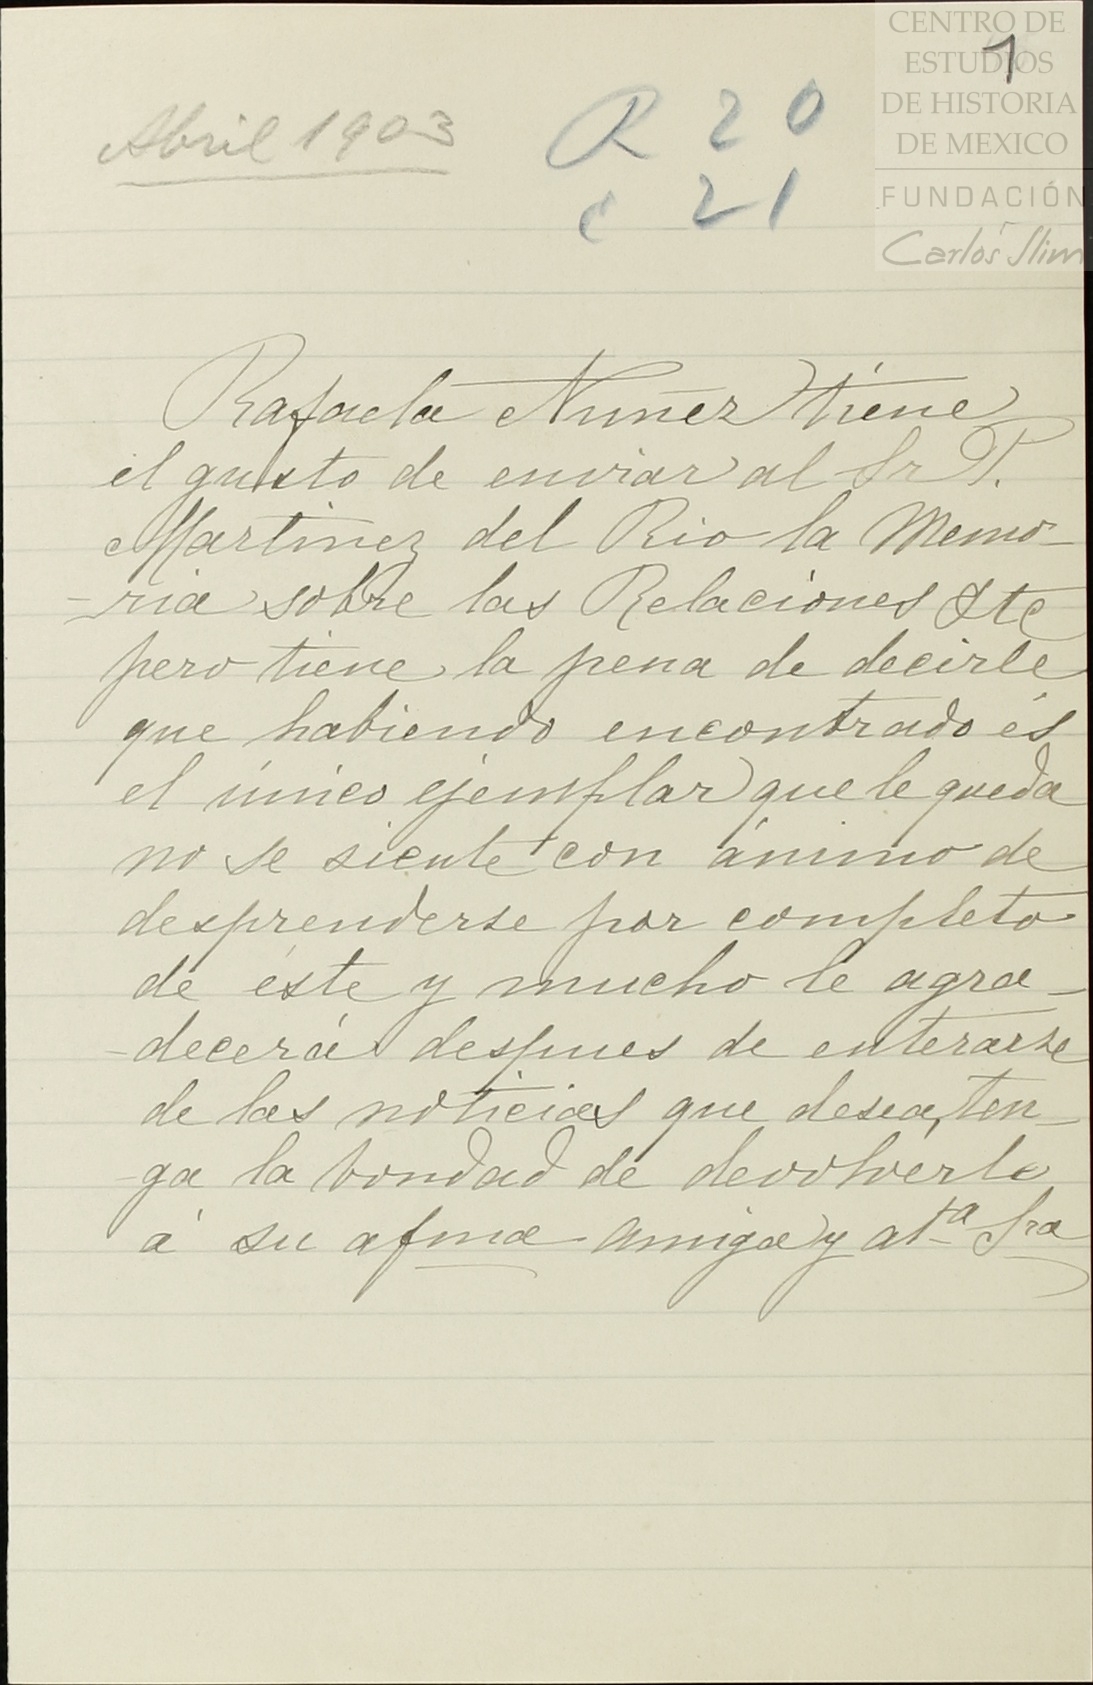 CENTRO DE
ESTUDIOS
DE HISTORIA
DE MEXICO
FUNDACIÓN
Carlos Slim
1
Abril 1903
R 20
c 21
Rafaela Nuñez tiene
el gusto de enviar al Sr P.
Martinez del Rio la Memo-
-ria sobre las Relaciones &tc
pero tiene la pena de decirle
que habiendo encontrado és
el único ejemplar que le queda
no se siente con ánimo de
desprenderse por completo
de éste y mucho le agra-
-decerá despues de enterarse
de las noticias que desea, ten-
-ga la bondad de devolverlo
á su afma amiga y atª Sra